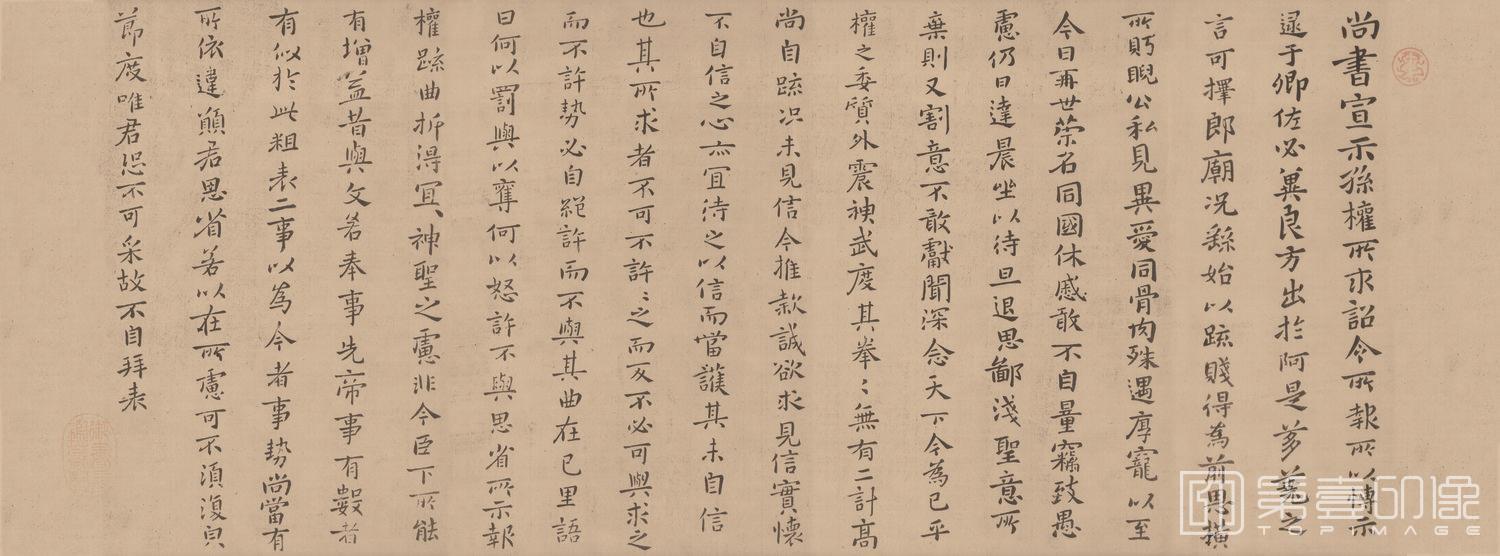 尚書宣示孫權所求詔令所報所以博示
逮于卿佐必冀良方出於阿是芻蕘之
言可擇郎廟況繇始以疏賤得為前恩橫
所眄睨公私見異愛同骨肉殊遇厚寵以至
今日再世榮名同國休慼敢不自量竊致愚
慮仍日達晨坐以待旦退思鄙淺聖意所
棄則又割意不敢獻聞深念天下今為已平
權之委質外震神武度其拳〻無有二計高
尚自疏況未見信今推款誠欲求見信實懷
不自信之心亦宜待之以信而當護其未自信
也其所求者不可不許〻之而反不必可與求之
而不許勢必自絕許而不與其曲在己里語
曰何以罰與以奪何以怒許不與思省所示報
權疏曲折得宜、神聖之慮非今臣下所能
有增益昔與文若奉事先帝事有數者
有似於此粗表二事以為今者事勢尚當有
所依違願君思省若以在所慮可不須復貢
節度唯君恐不可采故不自拜表
TOP IMAGE